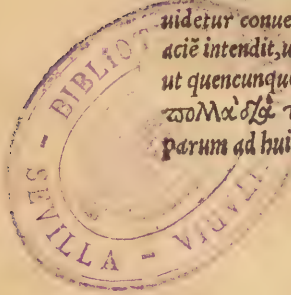 uidetur conue
aciē intendit, u
ut quencunque
πολλὰ δ᾽ὰ τ
parum ad hui
BIBLIOT
ITARIA
SEVILLA